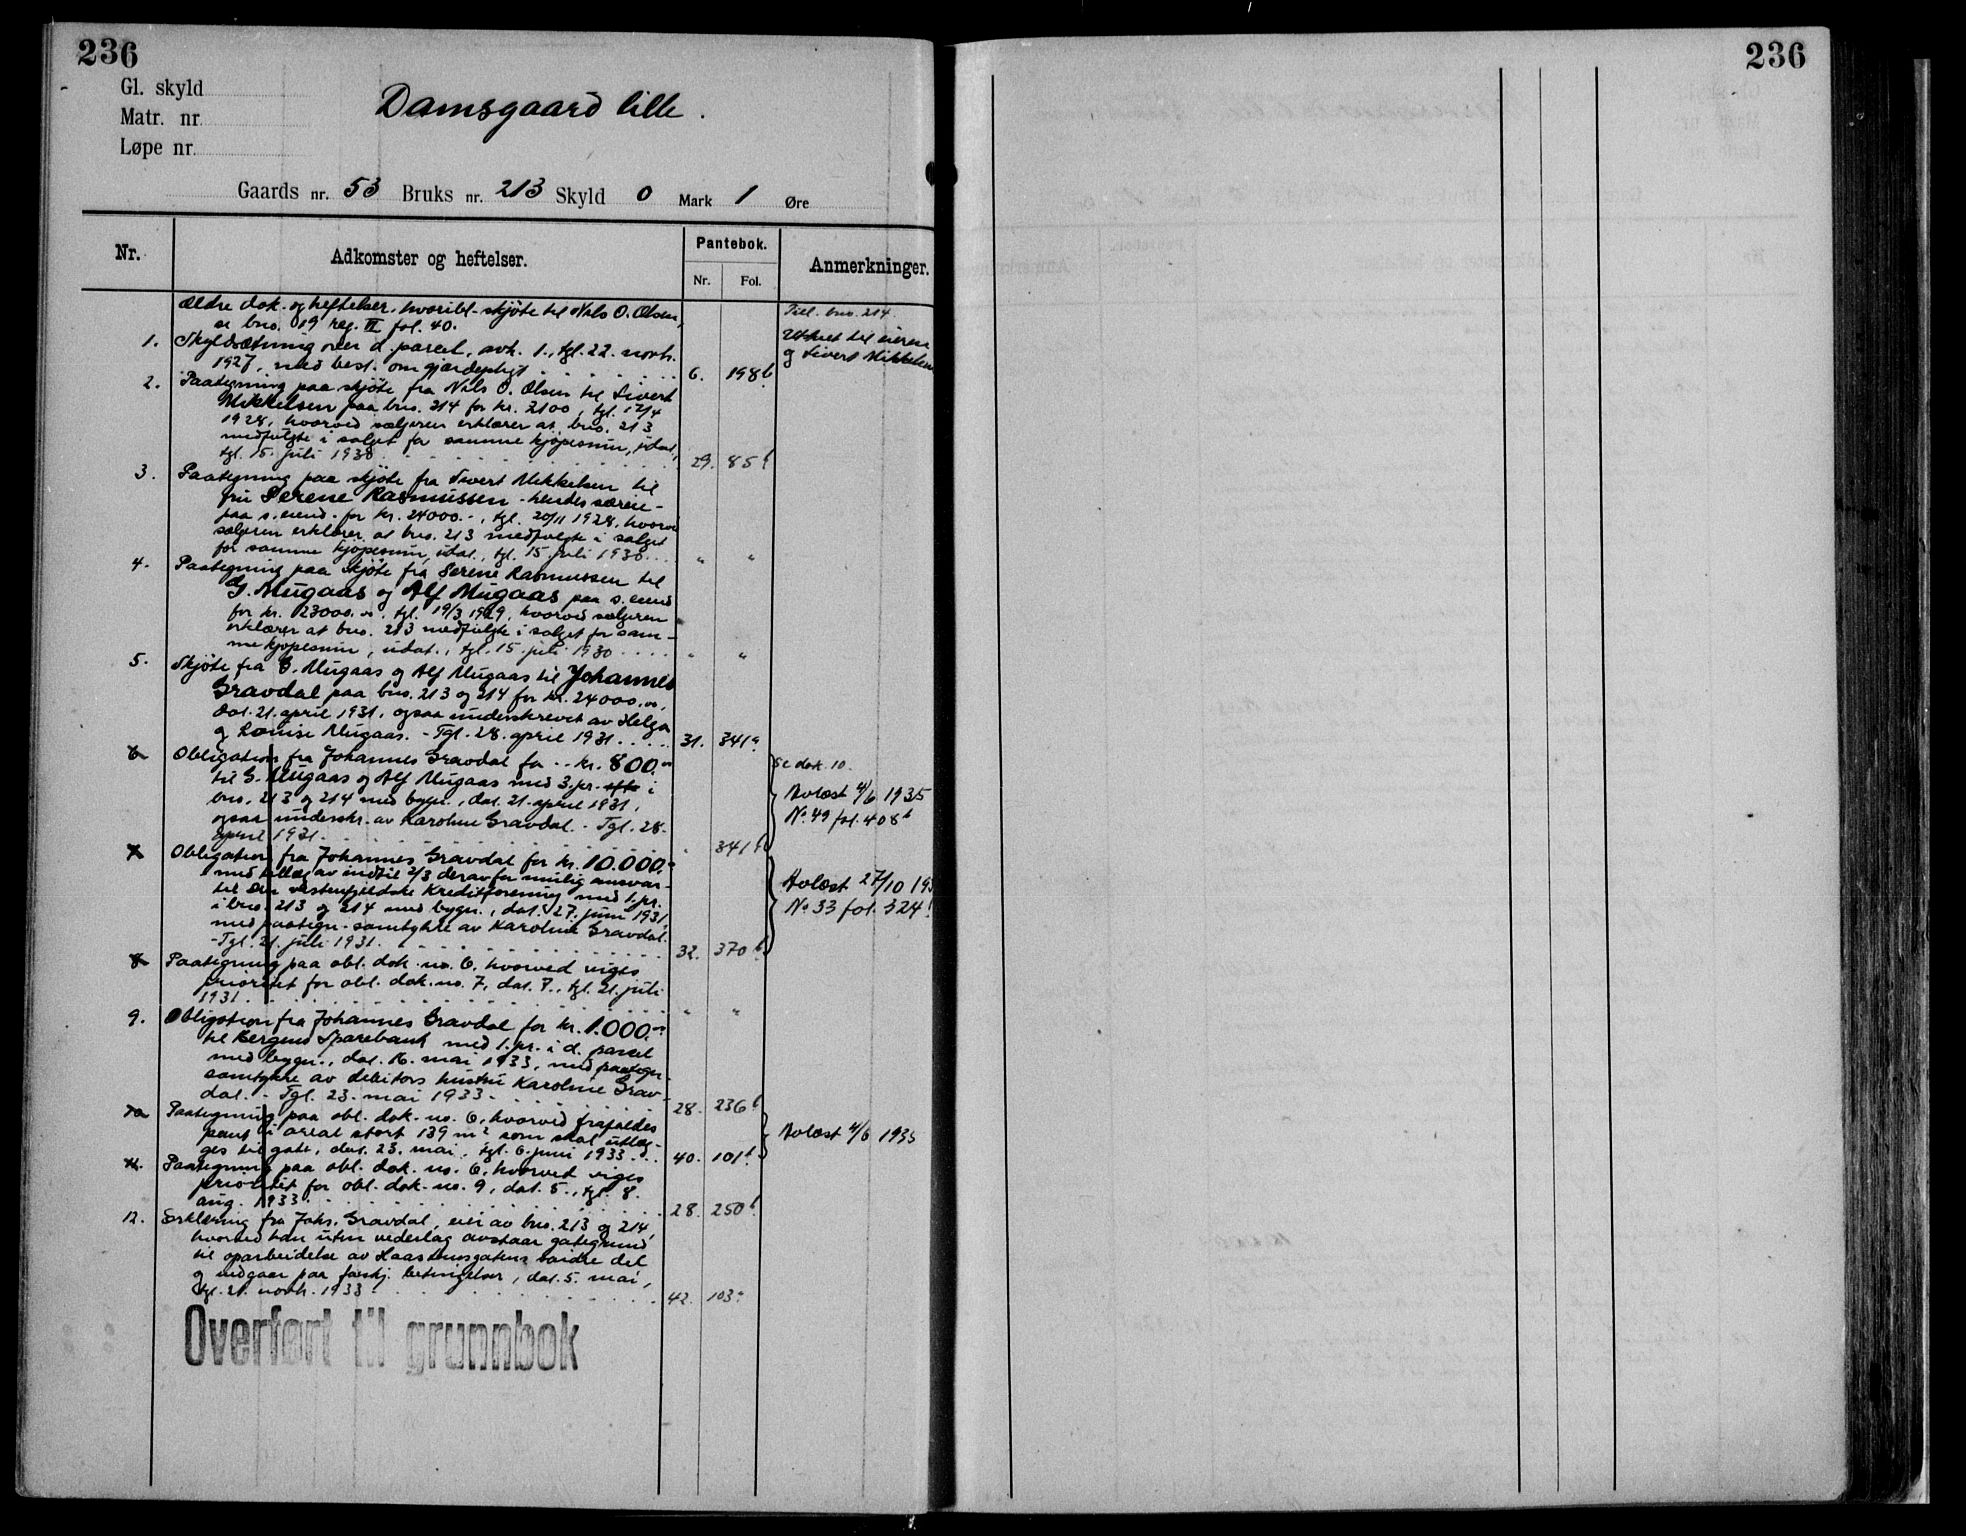 236
236
Gl. skyld
Matr. nr
Løpe nr.
Damsgaard lille.
Gaards nr. 53 Bruks nr. 213 Skyld 0 Mark 1 Øre
Nr.
Adkomster og heftelser.
Pantebok.
Nr. Fol.
Anmerkninger.
Ældre dok. og heftelser, hvoribl. skjøte til Nils O. Olsen,
se bno. 19 reg. VI fol. 40.
Till. bno. 214.
1. Skyldsætning over d. parcel, avh. 1., tgl. 22. novb.
1927, med best. om gjærdepligt 6. 198 b
til eieren
og Sivert Mikkelsen
2. Paategning paa skjøte fra Nils O. Olsen til Sivert
Mikkelsen paa bno. 214 for kr. 2100, tgl. 12/4
1928, hvorved sælgeren erklærer at bno. 213
medfulgte i salget for samme kjøpesum, udat.,
tgl. 15. juli 1930 29. 85 b
3. Paategning paa skjøte fra Sivert Mikkelsen til
fru Serene Rasmussen - hendes særeie -
paa s. eiend. for kr. 24000.-, tgl. 20/11 1928, hvorved
sælgeren erklærer at bno. 213 medfulgte i salget
for samme kjøpesum, udat., tgl. 15. juli 1930... " "
4. Paategning paa skjøte fra Serene Rasmussen til
G. Mugaas og Alf Mugaas paa s. eiend
for kr. 23000.00, tgl. 19/3 1929, hvorved sælgeren
erklærer at bno. 213 medfulgte i salget for sam-
me kjøpesum, udat., tgl. 15. juli 1930.... " "
5. Skjøte fra G. Mugaas og Alf Mugaas til Johannes
Gravdal paa bno. 213 og 214 for kr. 24000.00,
dat. 21. april 1931, ogsaa underskrevet av Helga
og Louise Mugaas. - Tgl. 28. april 1931..... 31. 341 a
6 Obligation fra Johannes Gravdal for .. kr. 800.00
til G. Mugaas og Alf Mugaas med 3. pr. efter i
bno. 213 og 214 med bygn., dat. 21. april 1931,
ogsaa underskr. av Karoline Gravdal. - Tgl. 28.
april 1931. " 341 b
Se dok. 10.
Avlæst 4/6 1935
No. 49 fol. 408 b
7 Obligation fra Johannes Gravdal for kr. 10.000.00
med tillæg av indtil 2/3 derav for mulig ansvar
til Den vestenfjeldske Kreditforening med 1. pr.
i bno. 213 og 214 med bygn., dat. 27. juni 1931,
med paategn. samtykke av Karoline Gravdal.
- Tgl. 21. juli 1931. 32. 370 b
Avlæst 27/10 193
No. 33 fol. 324
8 Paategning paa obl. dok. no. 6, hvorved viges
prioritet for obl. dok. no. 7, dat. 7., tgl. 21. juli
1931. " "
9. Obligation fra Johannes Gravdal for kr. 1.000.00
til Bergens Sparebank med 1. pr. i d. parcel
med bygn., dat. 16. mai 1933, med paategn.
samtykke av debitors hustru Karoline Grav-
dal. - Tgl. 23. mai 1933. 28. 236 b
10 Paategning paa obl. dok. no. 6, hvorved frafaldes
pant i areal stort 139 m2 som skal utlæg-
ges til gate, dat. 23. mai, tgl. 6. juni 1933... 40. 101 b
Avlæst 4/6 1935
11. Paategning paa obl. dok. no. 6, hvorved viges
prioritet for obl. dok. no. 9, dat. 5., tgl. 8.
aug. 1933 28. 250 b
12. Erklæring fra Johs. Gravdal, eier av bno. 213 og 214,
hvorved han uten vederlag avstaar gategrund
til oparbeidelse av Haasteinsgatens søndre del
og indgaar paa forskj. betingelser, dat. 5. mai,
tgl. 21. novb. 1933 42. 103 a
Overført til grunnbok